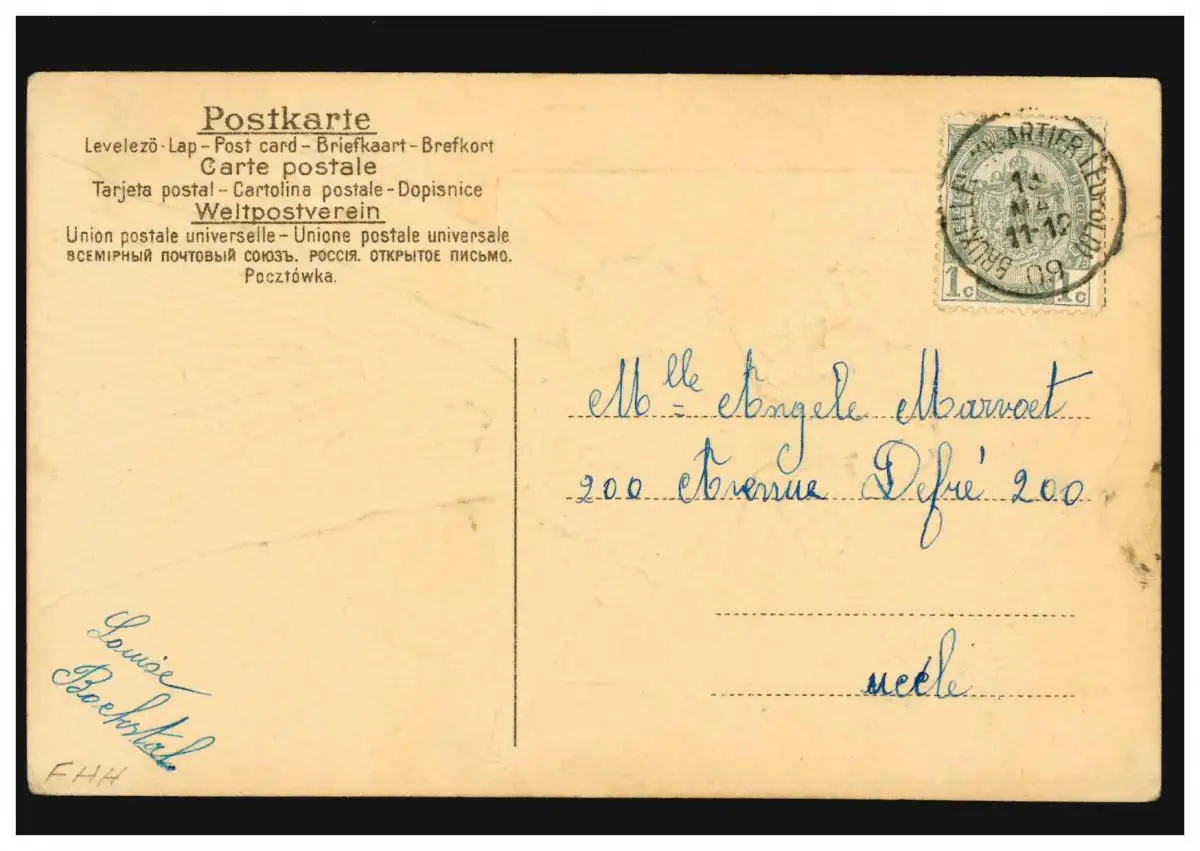 Postkarte
Levelezö-Lap – Post card – Briefkaart – Brefkort
Carte postale
Tarjeta postal – Cartolina postale – Dopisnice
Weltpostverein
Union postale universelle – Unione postale universale
ВСЕМІРНЫЙ ПОЧТОВЫЙ СОЮЗЪ. РОССІЯ. ОТКРЫТОЕ ПИСЬМО.
Pocztówka.
11-12
09
1c 1c
Mlle Angele Marvoet
200 Avenue Defré 200
uccle
Louise
FHH